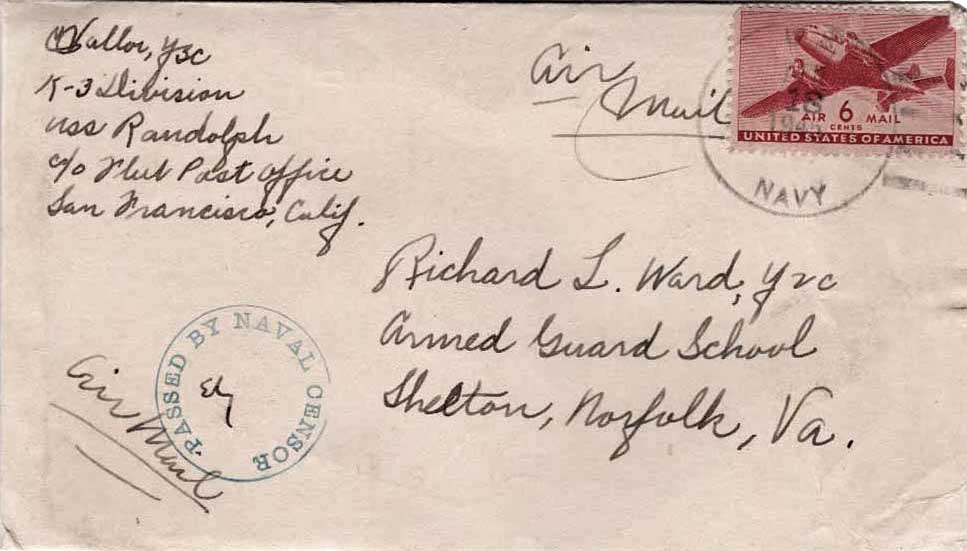 Vallor, Y3C
K-3 Division
USS Randolph
c/o Fleet Post Office
San Francisco, Calif.
Air
Mail
18
AIR 6 MAIL
CENTS
UNITED STATES OF AMERICA
NAVY
Richard L. Ward, Y2C
Armed Guard School
Shelton, Norfolk, Va.
PASSED BY NAVAL CENSOR
Air Mail